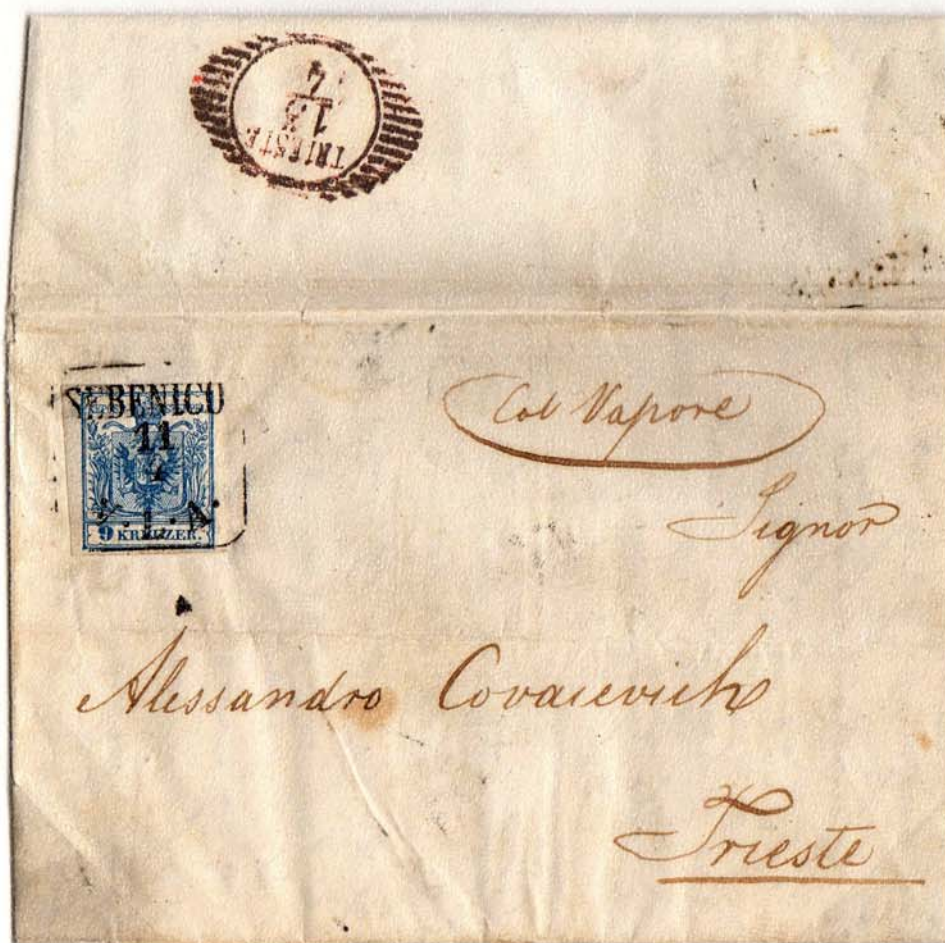 TRIESTE
SEBENICO
11
9 KREUZER.
Col Vapore
Signor
Alessandro Covacevich
Trieste